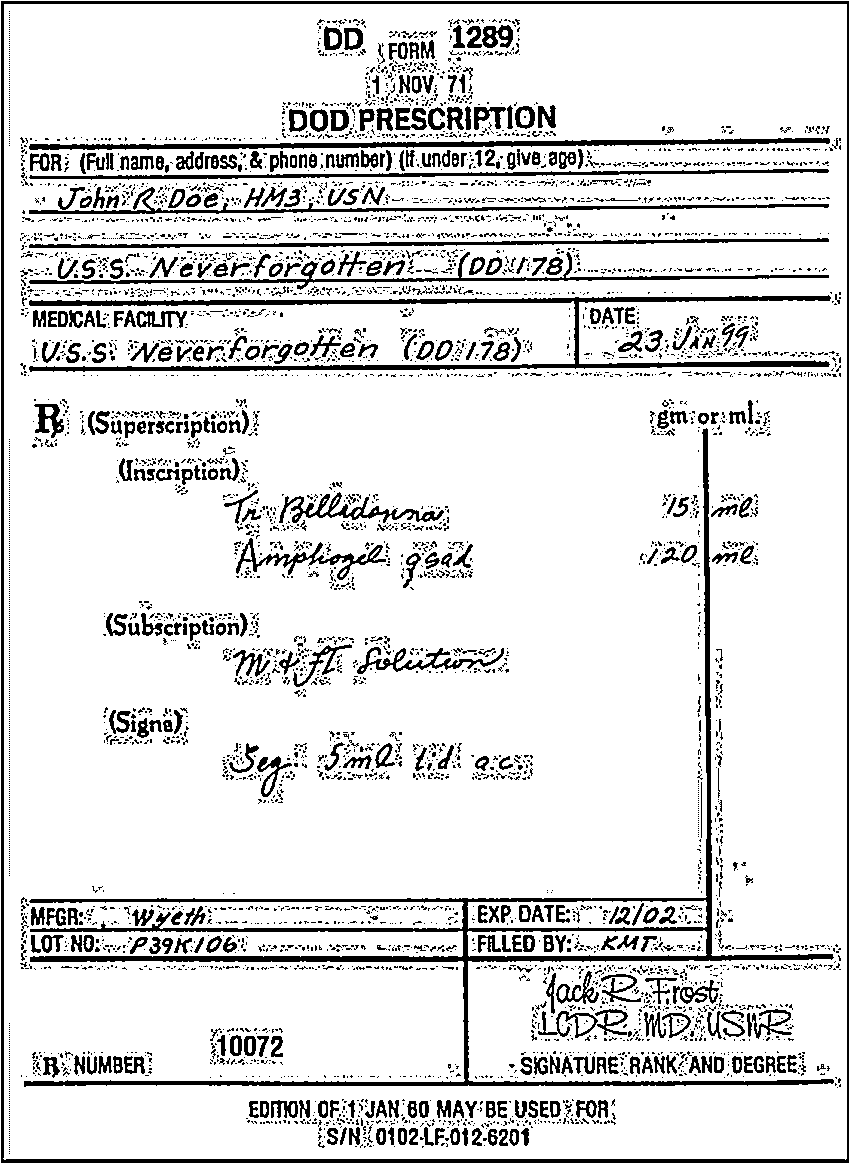 DD FORM 1289
1 NOV 71
DOD PRESCRIPTION
FOR: (Full name, address, & phone number) (If under 12, give age)
John R. Doe, HM3, USN
U.S.S. Neverforgotten (DD 178)
MEDICAL FACILITY
U.S.S. Neverforgotten (DD 178)
DATE
23 JAN 99
℞ (Superscription)
gm or ml.
(Inscription)
Tr Belladonna 15 ml
Amphogel qsad 120 ml
(Subscription)
M & Ft Solution
(Signa)
Sig: 5ml t.i.d. a.c.
MFGR: Wyeth
EXP. DATE: 12/02
LOT NO: P39K106
FILLED BY: KMT
Jack R. Frost
LCDR, MD, USNR
℞ NUMBER 10072
SIGNATURE RANK AND DEGREE
EDITION OF 1 JAN 60 MAY BE USED FOR
S/N 0102-LF-012-6201